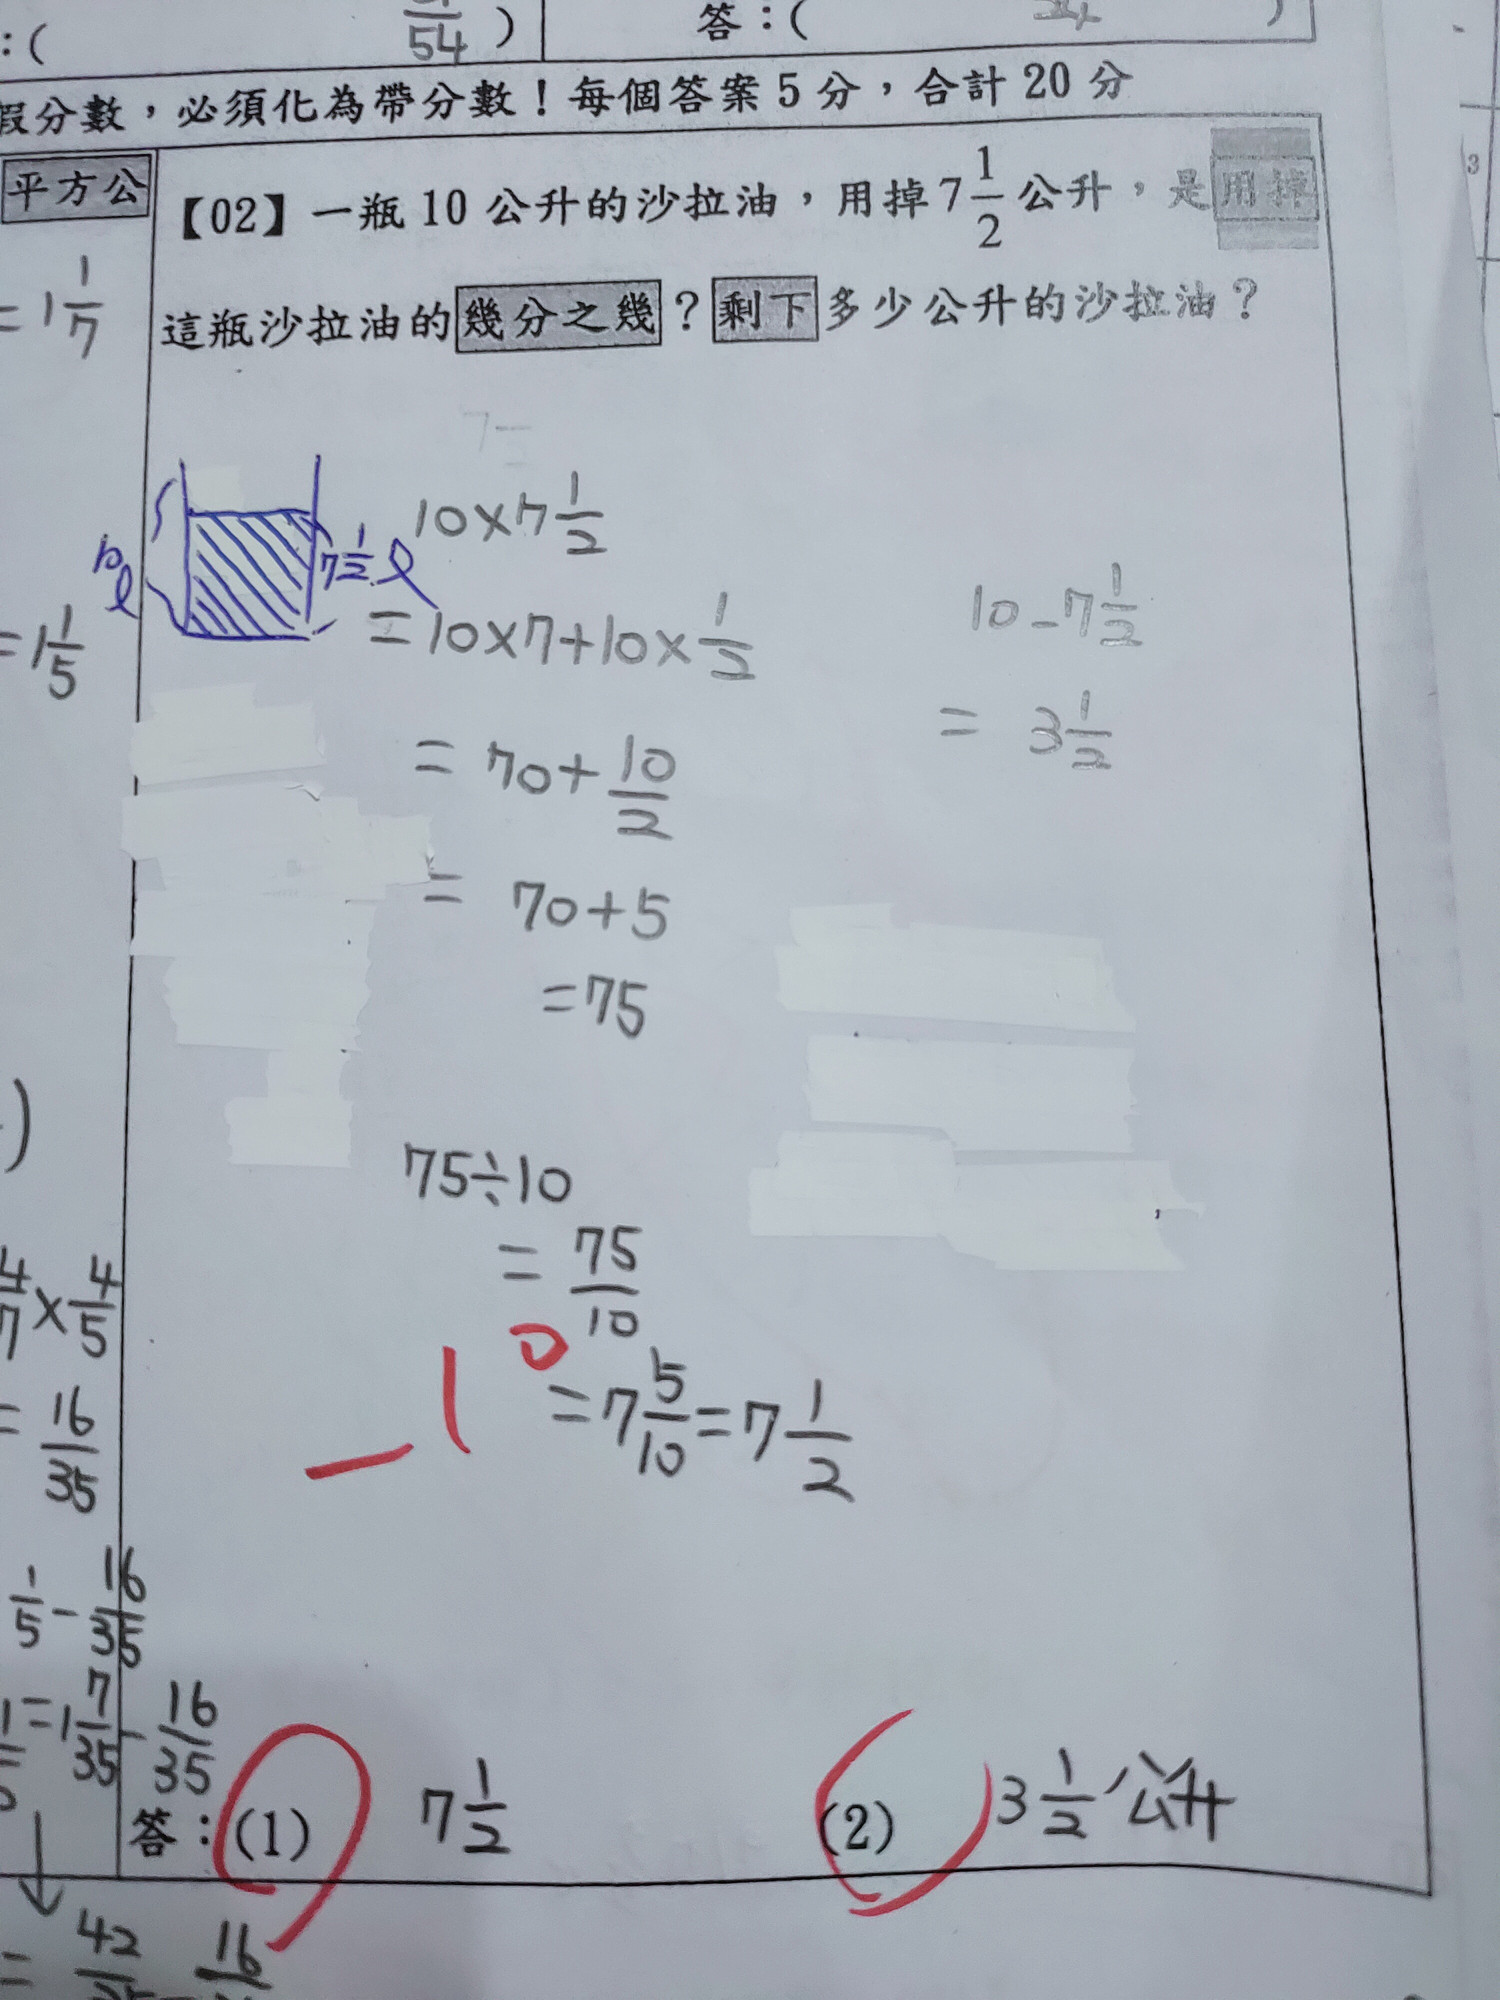 :( /54 ) 答:( )
假分數,必須化為帶分數!每個答案5分,合計20分
平方公
【02】一瓶10公升的沙拉油,用掉7 1/2公升,是用掉
這瓶沙拉油的幾分之幾?剩下多少公升的沙拉油?
= 1 1/7
7
10×7 1/2
10 l
7 1/2 l
= 10×7+10×1/2
= 70+10/2
= 70+5
=75
10-7 1/2
= 3 1/2
= 1 1/5
)
75÷10
= 75/10
= 7 5/10 = 7 1/2
-10
4/7 × 4/5
= 16/35
1/5 - 16/35
= 1 7/35 - 16/35
答:(1) 7 1/2 (2) 3 1/2 公升
= 42/35 - 16/
3